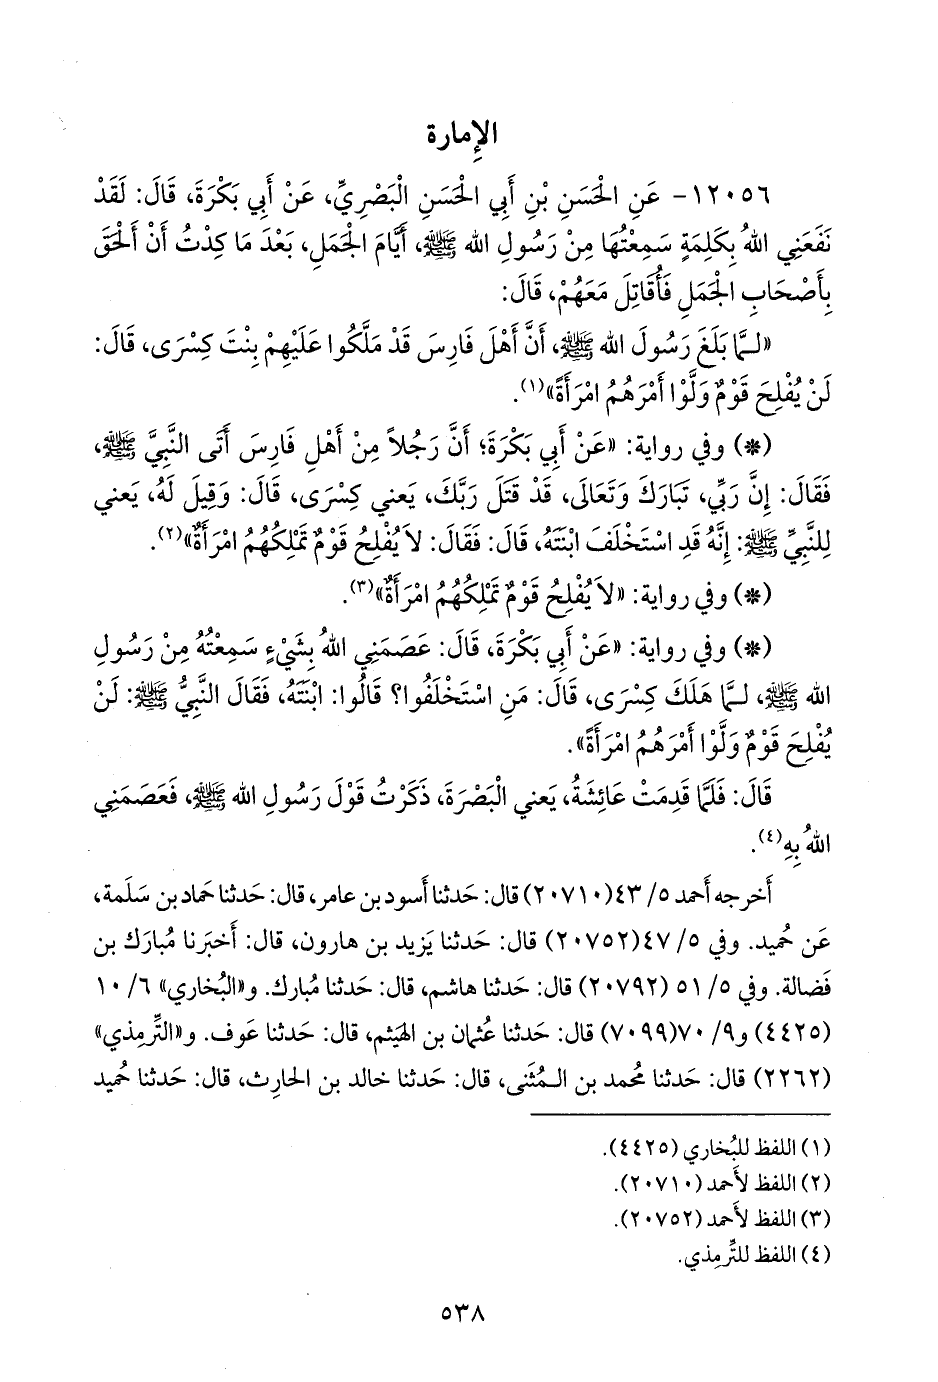 الإِمارة
١٢٠٥٦- عَنِ الْحَسَنِ بْنِ أَبِي الْحَسَنِ الْبَصْرِيِّ، عَنْ أَبِي بَكْرَةَ، قَالَ: لَقَدْ
نَفَعَنِي اللهُ بِكَلِمَةٍ سَمِعْتُهَا مِنْ رَسُولِ اللهِ ﷺ، أَيَّامَ الْجَمَلِ، بَعْدَ مَا كِدْتُ أَنْ أَلْحَقَ
بِأَصْحَابِ الْجَمَلِ فَأُقَاتِلَ مَعَهُمْ، قَالَ:
«لَـمَّا بَلَغَ رَسُولَ الله ﷺ، أَنَّ أَهْلَ فَارِسَ قَدْ مَلَّكُوا عَلَيْهِمْ بِنْتَ كِسْرَى، قَالَ:
لَنْ يُفْلِحَ قَوْمٌ وَلَّوْا أَمْرَهُمُ امْرَأَةً»(١).
(*) وفي رواية: «عَنْ أَبِي بَكْرَةَ؛ أَنَّ رَجُلاً مِنْ أَهْلِ فَارِسَ أَتَى النَّبِيَّ ﷺ،
فَقَالَ: إِنَّ رَبِّي، تَبَارَكَ وَتَعَالَى، قَدْ قَتَلَ رَبَّكَ، يَعني كِسْرَى، قَالَ: وَقِيلَ لَهُ، يَعني
لِلنَّبِيِّ ﷺ: إِنَّهُ قَدِ اسْتَخْلَفَ ابْنَتَهُ، قَالَ: فَقَالَ: لاَ يُفْلِحُ قَوْمٌ تَمْلِكُهُمُ امْرَأَةٌ»(٢).
(*) وفي رواية: «لاَ يُفْلِحُ قَوْمٌ تَمْلِكُهُمُ امْرَأَةٌ»(٣).
(*) وفي رواية: «عَنْ أَبِي بَكْرَةَ، قَالَ: عَصَمَنِي اللهُ بِشَيْءٍ سَمِعْتُهُ مِنْ رَسُولِ
الله ﷺ، لَـمَّا هَلَكَ كِسْرَى، قَالَ: مَنِ اسْتَخْلَفُوا؟ قَالُوا: ابْنَتَهُ، فَقَالَ النَّبِيُّ ﷺ: لَنْ
يُفْلِحَ قَوْمٌ وَلَّوْا أَمْرَهُمُ امْرَأَةً».
قَالَ: فَلَمَّا قَدِمَتْ عَائِشَةُ، يَعني الْبَصْرَةَ، ذَكَرْتُ قَوْلَ رَسُولِ الله ﷺ، فَعَصَمَنِي
اللهُ بِهِ(٤).
أَخرجه أَحمد ٥/ ٤٣(٢٠٧١٠) قال: حَدثنا أَسود بن عامر، قال: حَدثنا حَماد بن سَلَمة،
عَن حُميد. وفي ٥/ ٤٧(٢٠٧٥٢) قال: حَدثنا يَزيد بن هارون، قال: أَخبَرنا مُبارك بن
فَضالة. وفي ٥/ ٥١ (٢٠٧٩٢) قال: حَدثنا هاشم، قال: حَدثنا مُبارك. و«البُخاري» ٦/ ١٠
(٤٤٢٥) و٩/ ٧٠(٧٠٩٩) قال: حَدثنا عُثمان بن الهَيثم، قال: حَدثنا عَوف. و«التِّرمِذي»
(٢٢٦٢) قال: حَدثنا مُحمد بن الـمُثنى، قال: حَدثنا خالد بن الحارِث، قال: حَدثنا حُميد
(١) اللفظ للبُخاري (٤٤٢٥).
(٢) اللفظ لأَحمد (٢٠٧١٠).
(٣) اللفظ لأَحمد (٢٠٧٥٢).
(٤) اللفظ للتِّرمِذي.
٥٣٨